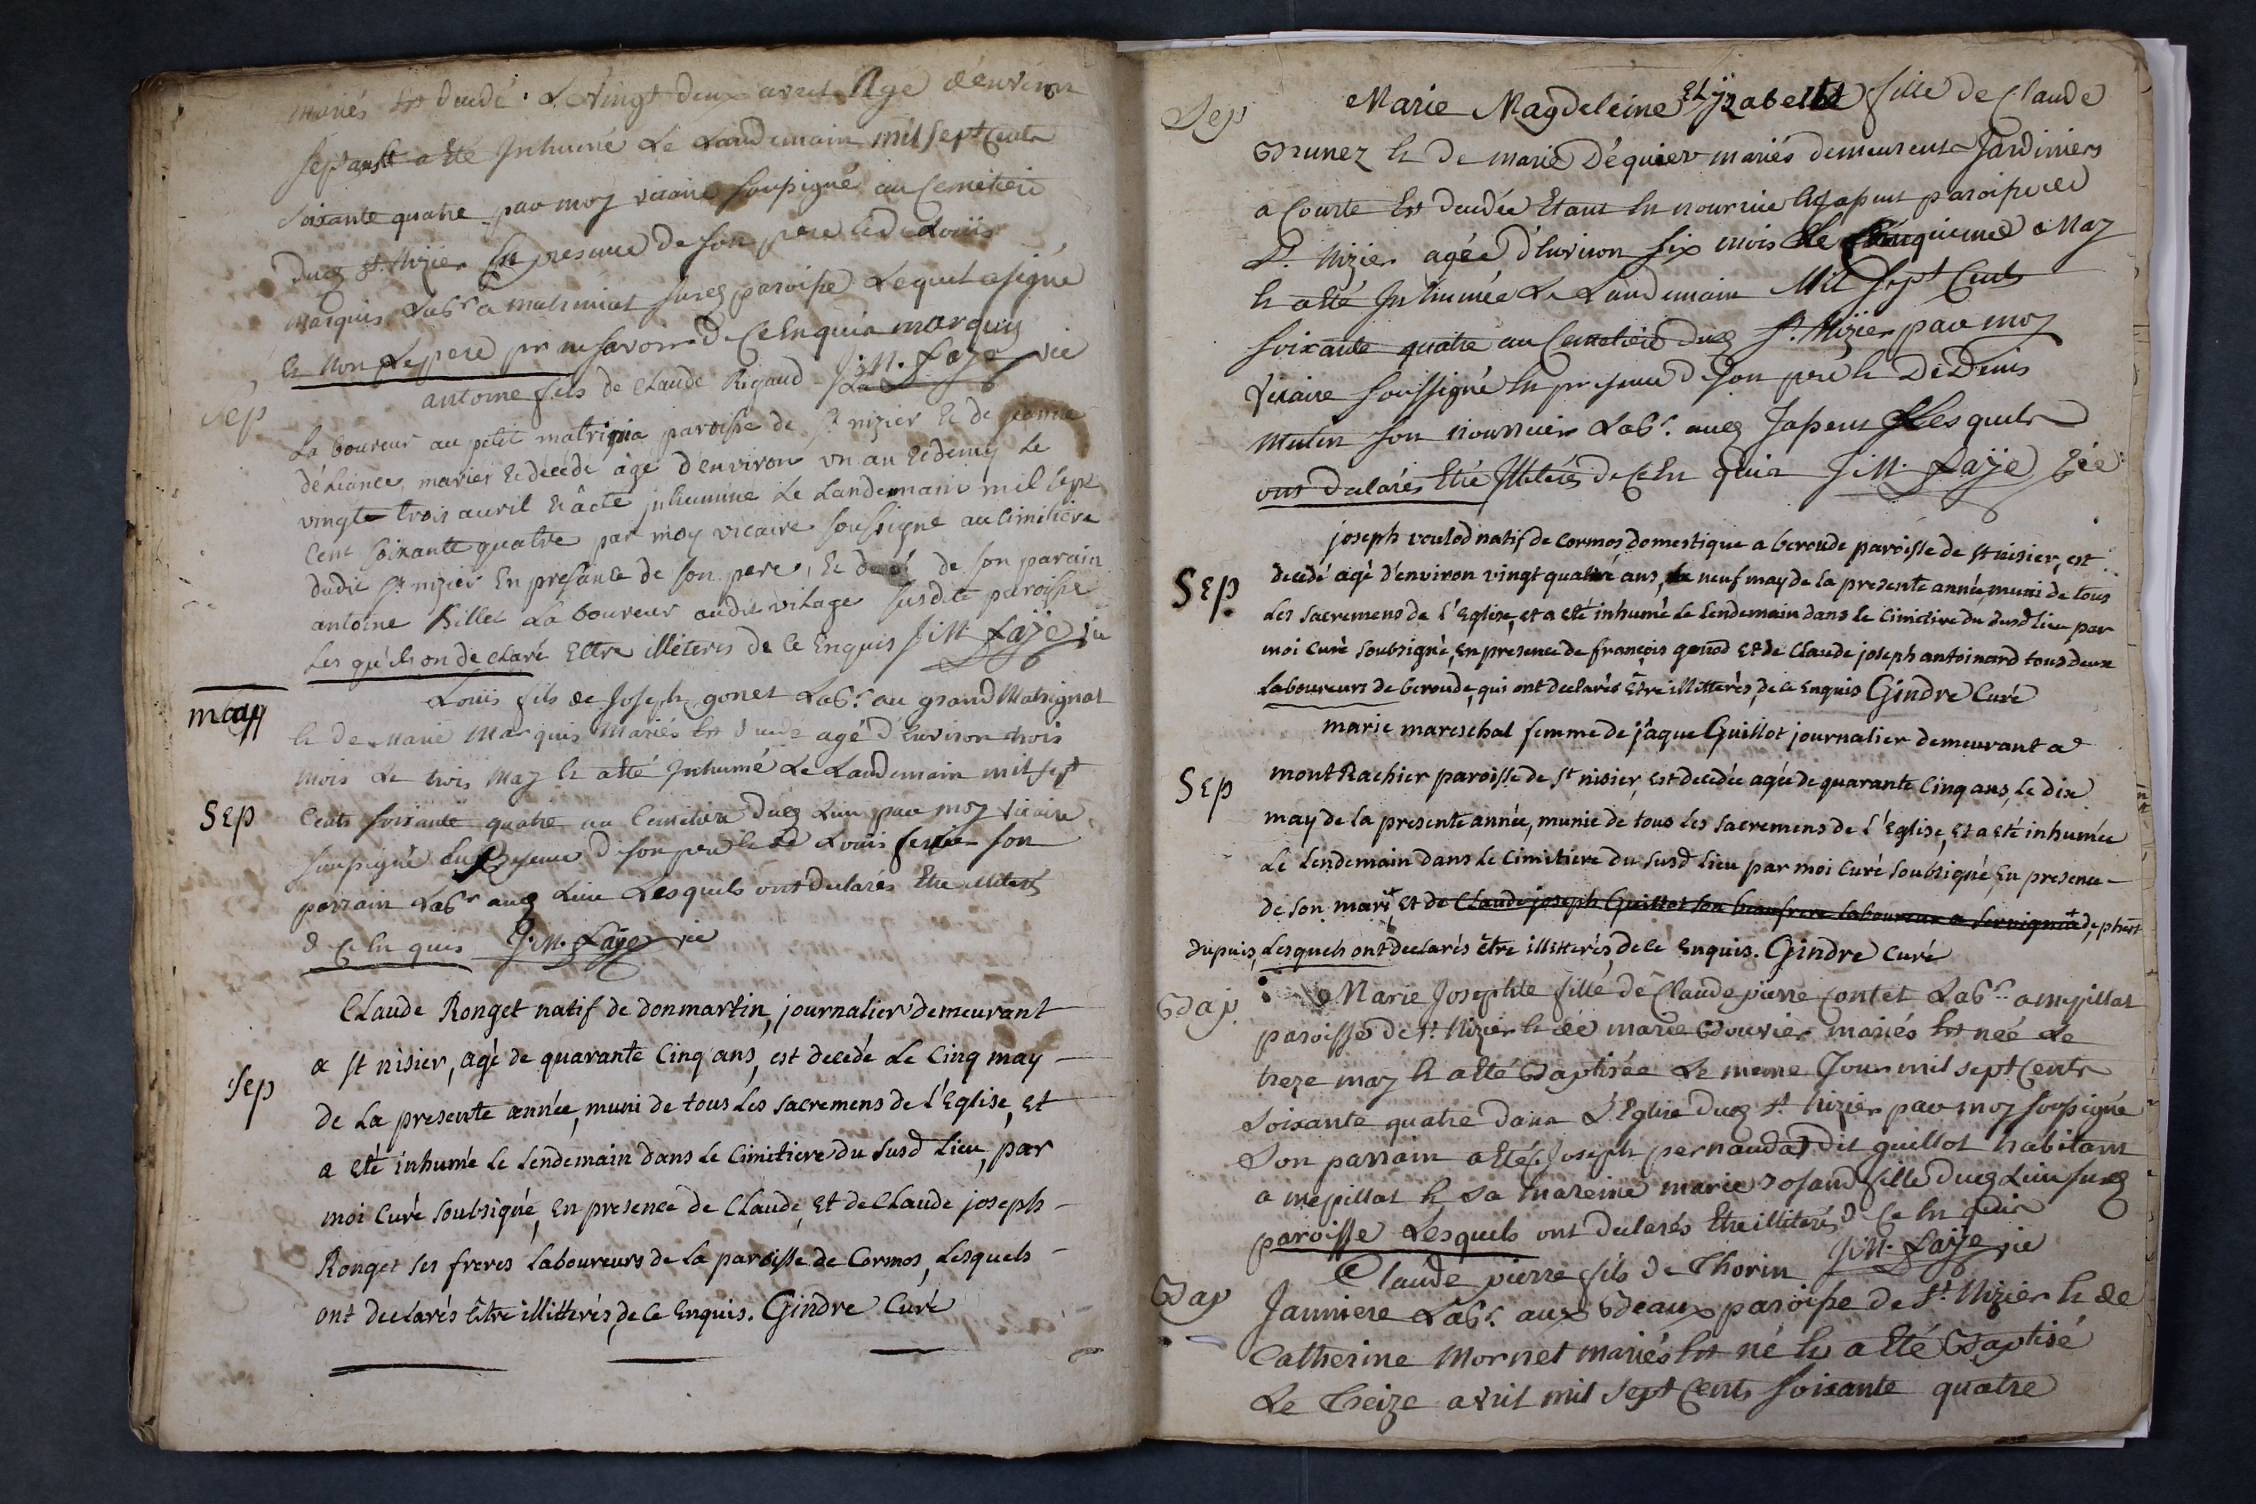 mariés Est decedé Le Vingt deux avril Age d'environ
sept ans Et a Eté Inhumé Le Landemain mil sept Cents
Soixante quatre par moy vicaire soussigné au Cemetiere
dud St. Nizier En presence de son pere Et de Louis
Marquis Labr. a matrinias sused paroisse Lequel a signé
Et Non Le pere pr ne savoir de Ce Enquis marquis
J:M. Laÿe vic
Sep
antoine fils de Claude Rigaud
La boureur au petit matrigna paroisse de St nizier Et de jeanne
déliance mariez Et decede âgé d'environ un an Et demy Le
vingt trois auril Et a ete inhumme Le Landemain mil sept
Cent soixante quatre par moy vicaire soussigne au Cimitiere
dudit St. nizier En presance de son pere, Et de de son parain
antoine Billet La boureur audit vilage susdite paroisse
Les qu'els on de claré Ettre illéteres de Ce Enquis J:M. Laÿe vic
may
Louis fils de Joseph gonet Labr. au grand Matrignat
Et de Marie Marquis Mariés Est decede agé d'Environ trois
Mois Le trois May Et a Eté Inhumé Le Landemain mil sept
Sep
Cents soixante quatre au Cemetiere dud Lieu par moy vicaire
soussigné En Presence de son pere Et de Louis son
parrain Labr aud Lieu Lesquels ont declarés Etre illiterés
de Ce Enquis J.M. Laÿe vic
Claude Ronget natif de donmartin, journalier demeurant
a st nisier, agé de quarante Cinq ans, est decedé Le Cinq may
Sep
de La presente année, muni de tous Les sacremens de l'Eglise, Et
a eté inhumé le Lendemain dans le Cimitiere du susd Lieu, par
moi Curé soubsigné, En presence de Claude, Et de Claude joseph
Ronget ses freres Laboureurs de La paroisse de Cormos, Lesquels
ont declarés être illitterés, de Ce Enquis. Gindre Curé
Sep
Marie Magdeleine Et Yzabelle fille de Claude
Brunez Et de marie Déquier mariés demeurents Jardiniers
a Courte Est decedée Etant En nourrice a Japeus paroisse de
St. Nizier agée d'Environ six mois Le Cinquieme May
Et a Eté Inhumée Le Landemain Mil Sept Cents
soixante quatre au Cemetiere dud St. Nizier par moy
Vicaire soussigné En presence de son pere Et De Denis
Mulin son nourricier Labr. aud Japeus Lesquels
ont declarés Etre Illiterés de Ce En quis J:M. Laÿe Vic
joseph voulod natif de Cormos, domestique a beroude paroisse de st nisier, est
Sep
decedé agé d'environ vingt quatre ans, Le neuf may de la presente année, muni de tous
Les sacremens de l'Eglise, et a eté inhumé Le Lendemain dans le Cimitiere du susd lieu par
moi Curé soubsigné, En presence de françois genod Et de Claude joseph antoinard tous deux
Laboureurs de beroude, qui ont declarés Etre illitterés, de Ce Enquis Gindre Curé
marie mareschal femme de jâque Guillot journalier demeurant a
Sep
mont Rachier paroisse de St nisier, Est decedée agée de quarante Cinq ans, Le dix
may de la presente année, munie de tous Les sacremens de l'Eglise, Et a eté inhumée
Le Lendemain dans le Cimitiere du susd Lieu par moi Curé soubsigné, En presence
de son mari, Et de Claude joseph Guillot son beaufrere laboureur a servignat
dupuis, Lesquels ont declarés être illitterés, de Ce Enquis. Gindre Curé
Bap.
Marie Josephte fille de Claude pierre Contet Labr. a mepillat
paroisse de St. Nizier Et de marie Bouvier mariés Est neé Le
treze may Et a Eté Baptisée Le meme Jour mil sept Cents
soixante quatre dans L'Eglise dud St. Nizier par moy soussigné
Son parrain a Eté Joseph pernaudat dit guillot habitant
a mepillat Et sa mareine marie Josand fille dud Lieu sused
paroisse Lesquels ont declarés Etre illiterés de Ce En quis
J:M. Laÿe vic
Bap
Claude pierre fils de Thorin
Janniere Labr. aux Beaux paroisse de St. Nizier Et de
Catherine Mornet mariés Est né Et a Eté Baptisé
Le Treize avril mil Sept Cents soixante quatre